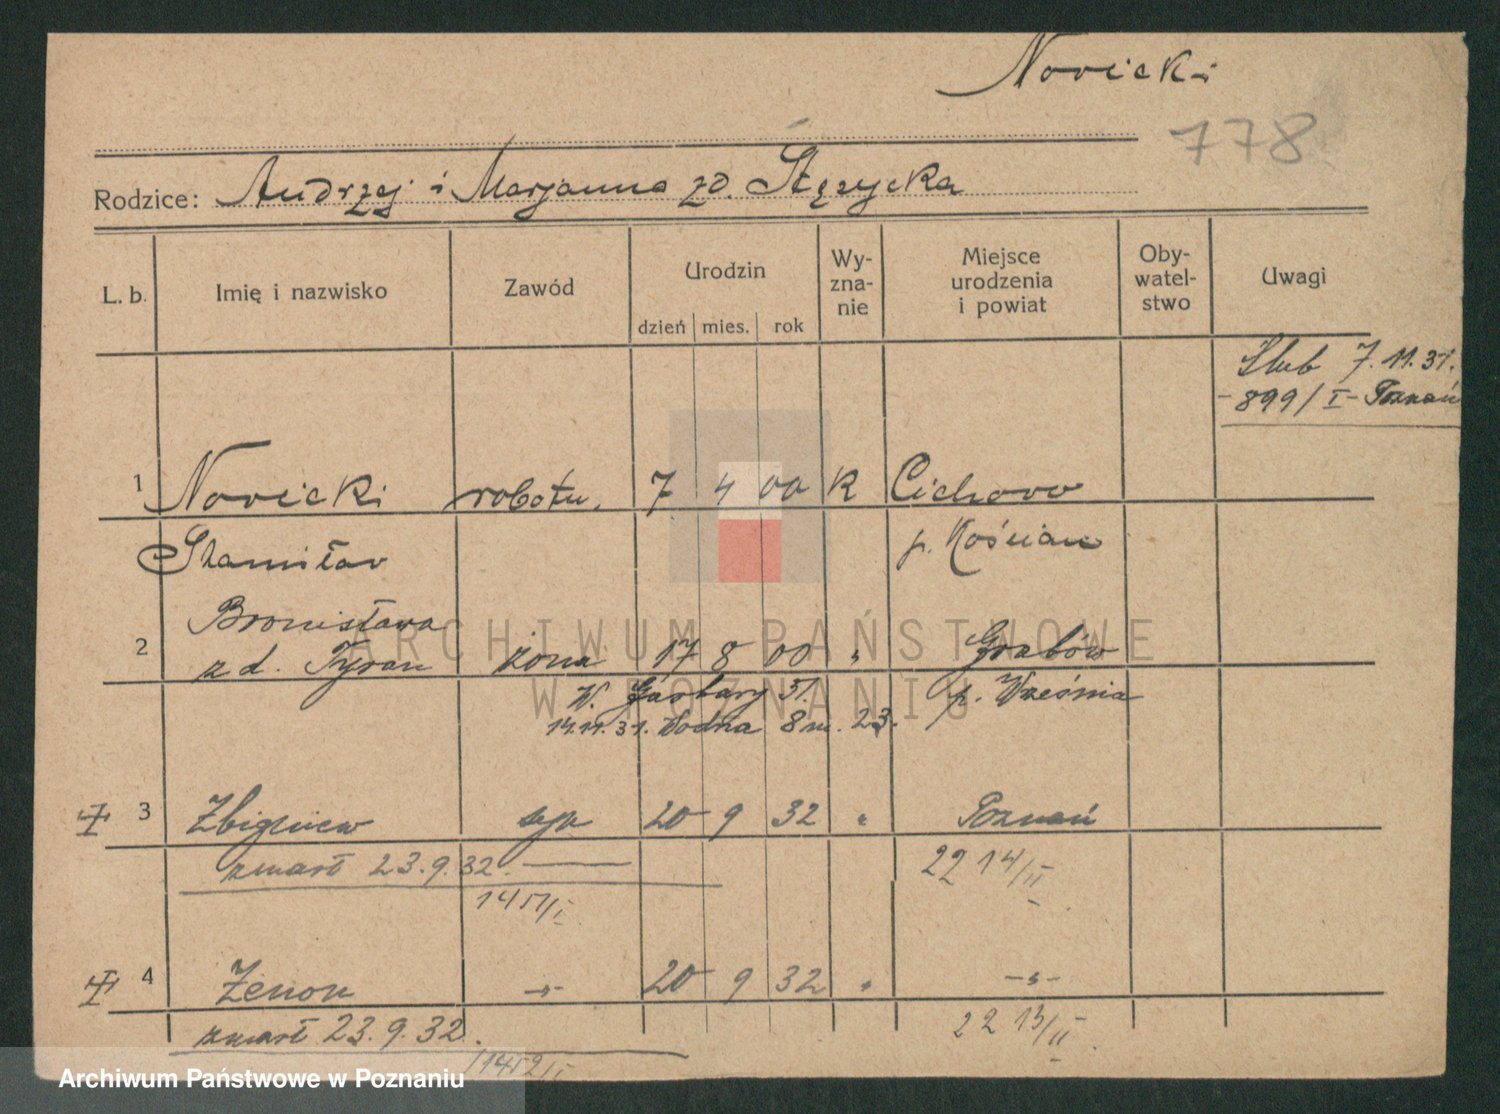 Novicki
778
Rodzice: Andrzej i Marjanna zd. Stęzycka
L. b. Imię i nazwisko Zawód Urodzin dzień mies. rok Wy-zna-nie Miejsce urodzenia i powiat Oby-watel-stwo Uwagi
Ślub 7.11.31.
-899/I- Poznań
1 Novicki robotn. 7 4 00 K Cichovo
Stanisłav p. Kościan
Bronisłava
2 z d. Tyran żona 17 8 00 " Grabów
p. Września
W. Garbary 51.
14.11.31. Wodna 8 m. 23.
3 Zbigniew syn 20 9 32 " Poznań
zmarł 23.9.32. 2214/II
1451/I
4 Zenon -"- 20 9 32 " -"-
zmarł 23.9.32. 2213/II
1452/I
ARCHIWUM PAŃSTWOWE
W POZNANIU
Archiwum Państwowe w Poznaniu